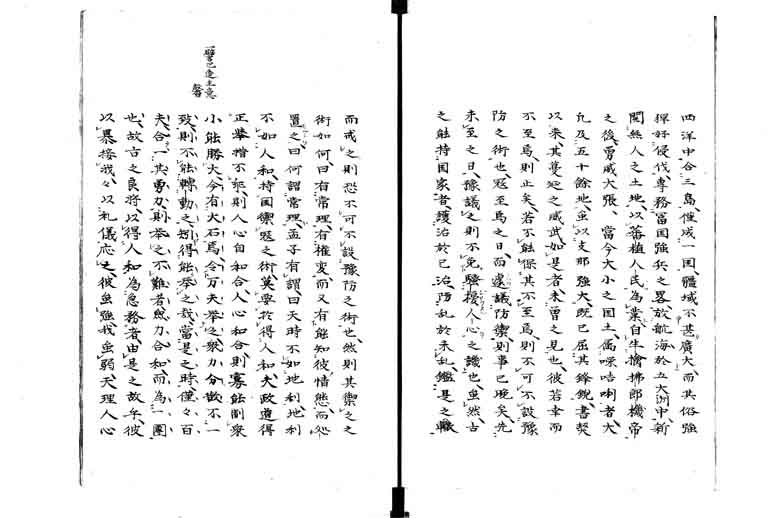 西洋中合三島僅成一国疆域不甚廣大而其俗強
猂好侵伐專務冨国強兵之畧放航海於五大洲中新
閲無人之土地以蕃植人民為業自生擒拂郎機帝
之後勇威大張當今大小之国土属嘆咭唎者大
凢及五十餘地虽以支那強大既已屈其鋒鋭書契
以来其蔓延之威武如是者未曽之見也彼若幸而
不至焉則止矣若不能保其不至焉則不可不設豫
防之術也冦至焉之日而遽議防禦則事已晩矣先
未至之日豫議之則不免騒擾人心之譏也虽然古
之能持国家者護治於已治防乱於未乱鑑是之轍
而戒之則恐不可不設豫防之術也然則其禦之之
術如何曰有常理有權変而又有能知彼情態而処
置之曰何謂常理孟子有謂曰天時不如地利地利
不如人和持国禦冦之術莫要於得人和夫政道得
正挙措不乖則人心自和合人心和合則寡能制衆
小能勝大今有大石焉令万夫挙之衆力分散不一
致則不能轉動之矧得能挙之哉當是之時僅々百
夫合一其勇力則挙之不難者然力合和而為一團
也故古之良将以得人和為急務者由是之故乎彼
以暴接我々以礼儀応之彼虽強我虽弱天理人心